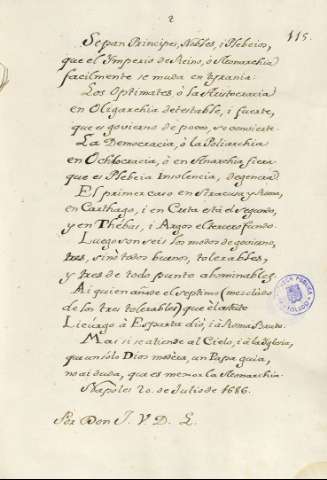 2
115.
Sepan Principes, Nobles, i Plebeios,
que el Imperio de Reino, ò Monarchia
facilmente se muda en tyrania.
Los Optimates ò la Autocracia
en Oligarchia detestable, i fuerte,
que es govierno de pocos, se convierte.
La Democracia, ò la Poliarchia
en Ochlocracia, ò en Anarchia fiera
que es Plebeia Insolencia, degenera.
El primer caso en Siracusa y Roma,
en Carthago, i en Creta està el segundo,
y en Thébas, i Argos el tercero fundo.
Luego son seis los modos de govierno,
tres, sinò todos buenos, tolerables,
y tres de todo punto abominables.
Ai quien añade el septimo (mezclado
de los tres tolerables) que
Licurgo à Esparta diò, i à Roma Bruto.
Mas si se atiende al Cielo, i à la Iglesia,
que un solo Dios modera, un Papa guia,
no ai duda, que es mejor la Monarchia.
Napoles 20. de Julio de 1686.
Por Don J. V. D. L.
PUBLICA
TOLEDO